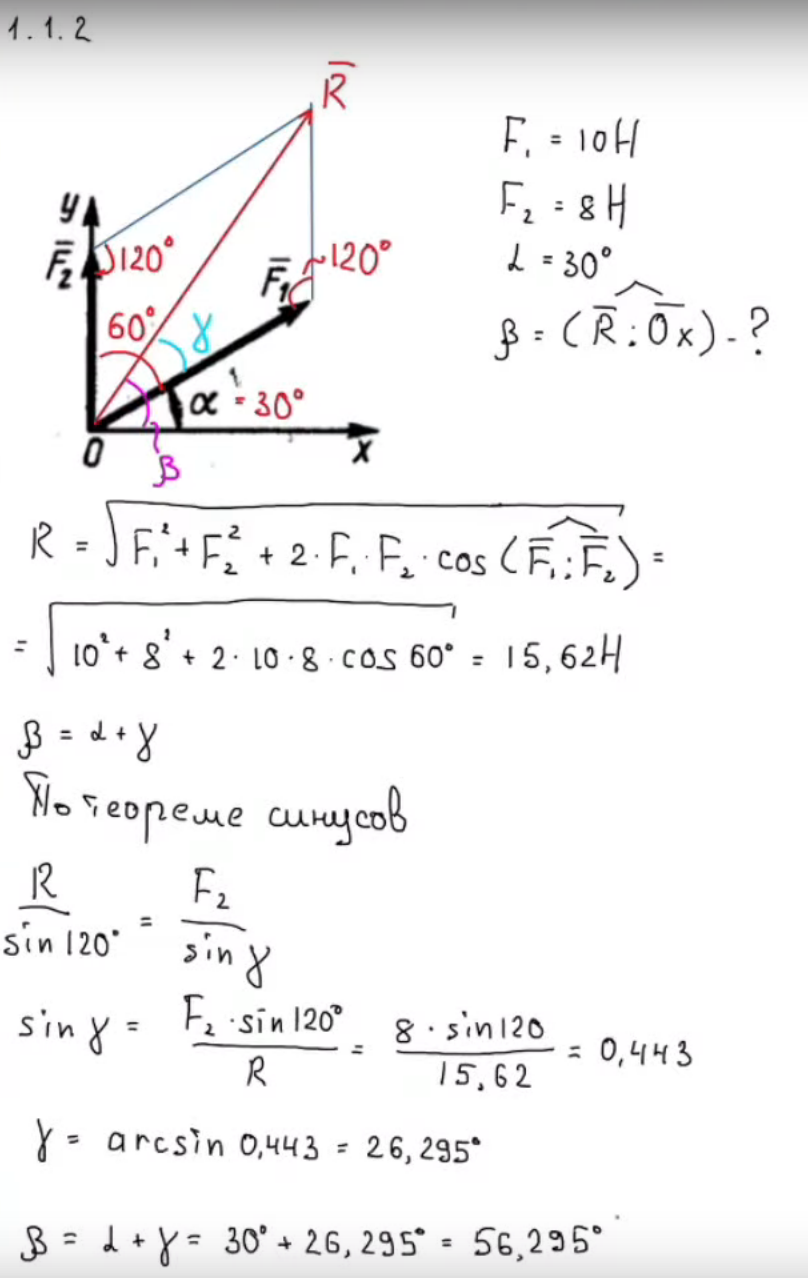 1.1.2
R̅
F₁ = 10H
F₂ = 8H
y
F̅₂
120°
F̅₁
120°
α = 30°
β = (R̅ ; O̅x) - ?
60°
γ
α = 30°
O
β
x
R = √(F₁² + F₂² + 2 · F₁ · F₂ · cos (F̅₁ ; F̅₂)) =
= √(10² + 8² + 2 · 10 · 8 · cos 60°) = 15,62H
β = α + γ
По теореме синусов
R / sin 120° = F₂ / sin γ
sin γ = F₂ · sin 120° / R = 8 · sin 120 / 15,62 = 0,443
γ = arcsin 0,443 = 26,295°
β = α + γ = 30° + 26,295° = 56,295°